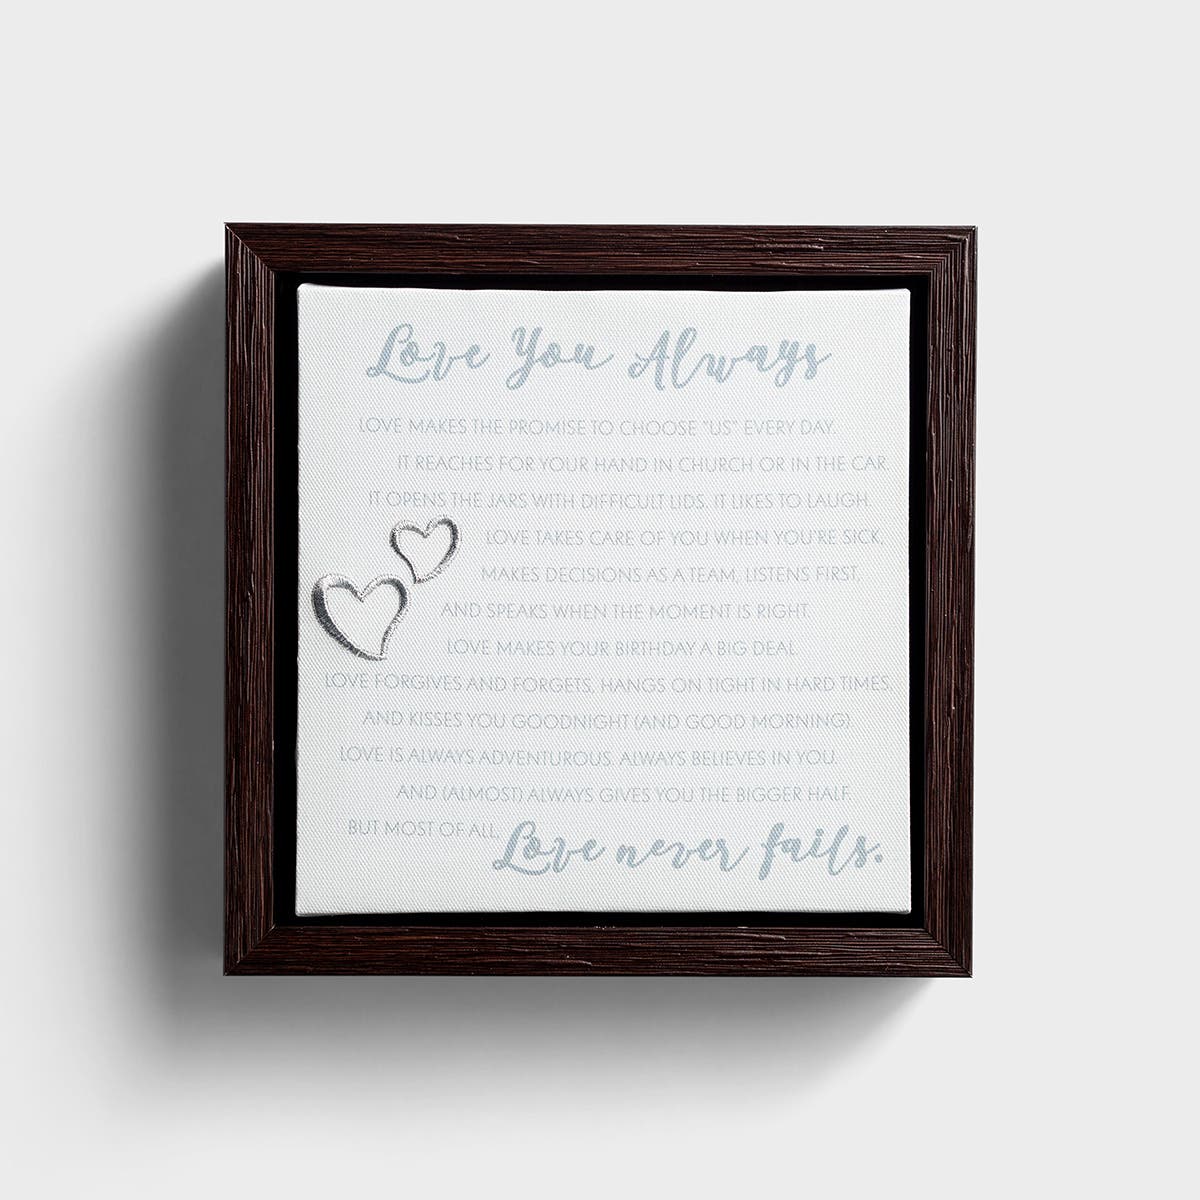 Love You Always
LOVE MAKES THE PROMISE TO CHOOSE "US" EVERY DAY.
IT REACHES FOR YOUR HAND IN CHURCH OR IN THE CAR.
IT OPENS THE JARS WITH DIFFICULT LIDS. IT LIKES TO LAUGH.
LOVE TAKES CARE OF YOU WHEN YOU'RE SICK,
MAKES DECISIONS AS A TEAM, LISTENS FIRST
AND SPEAKS WHEN THE MOMENT IS RIGHT.
LOVE MAKES YOUR BIRTHDAY A BIG DEAL.
LOVE FORGIVES AND FORGETS, HANGS ON TIGHT IN HARD TIMES,
AND KISSES YOU GOODNIGHT (AND GOOD MORNING)
LOVE IS ALWAYS ADVENTUROUS. ALWAYS BELIEVES IN YOU.
AND (ALMOST) ALWAYS GIVES YOU THE BIGGER HALF.
BUT MOST OF ALL, Love never fails.